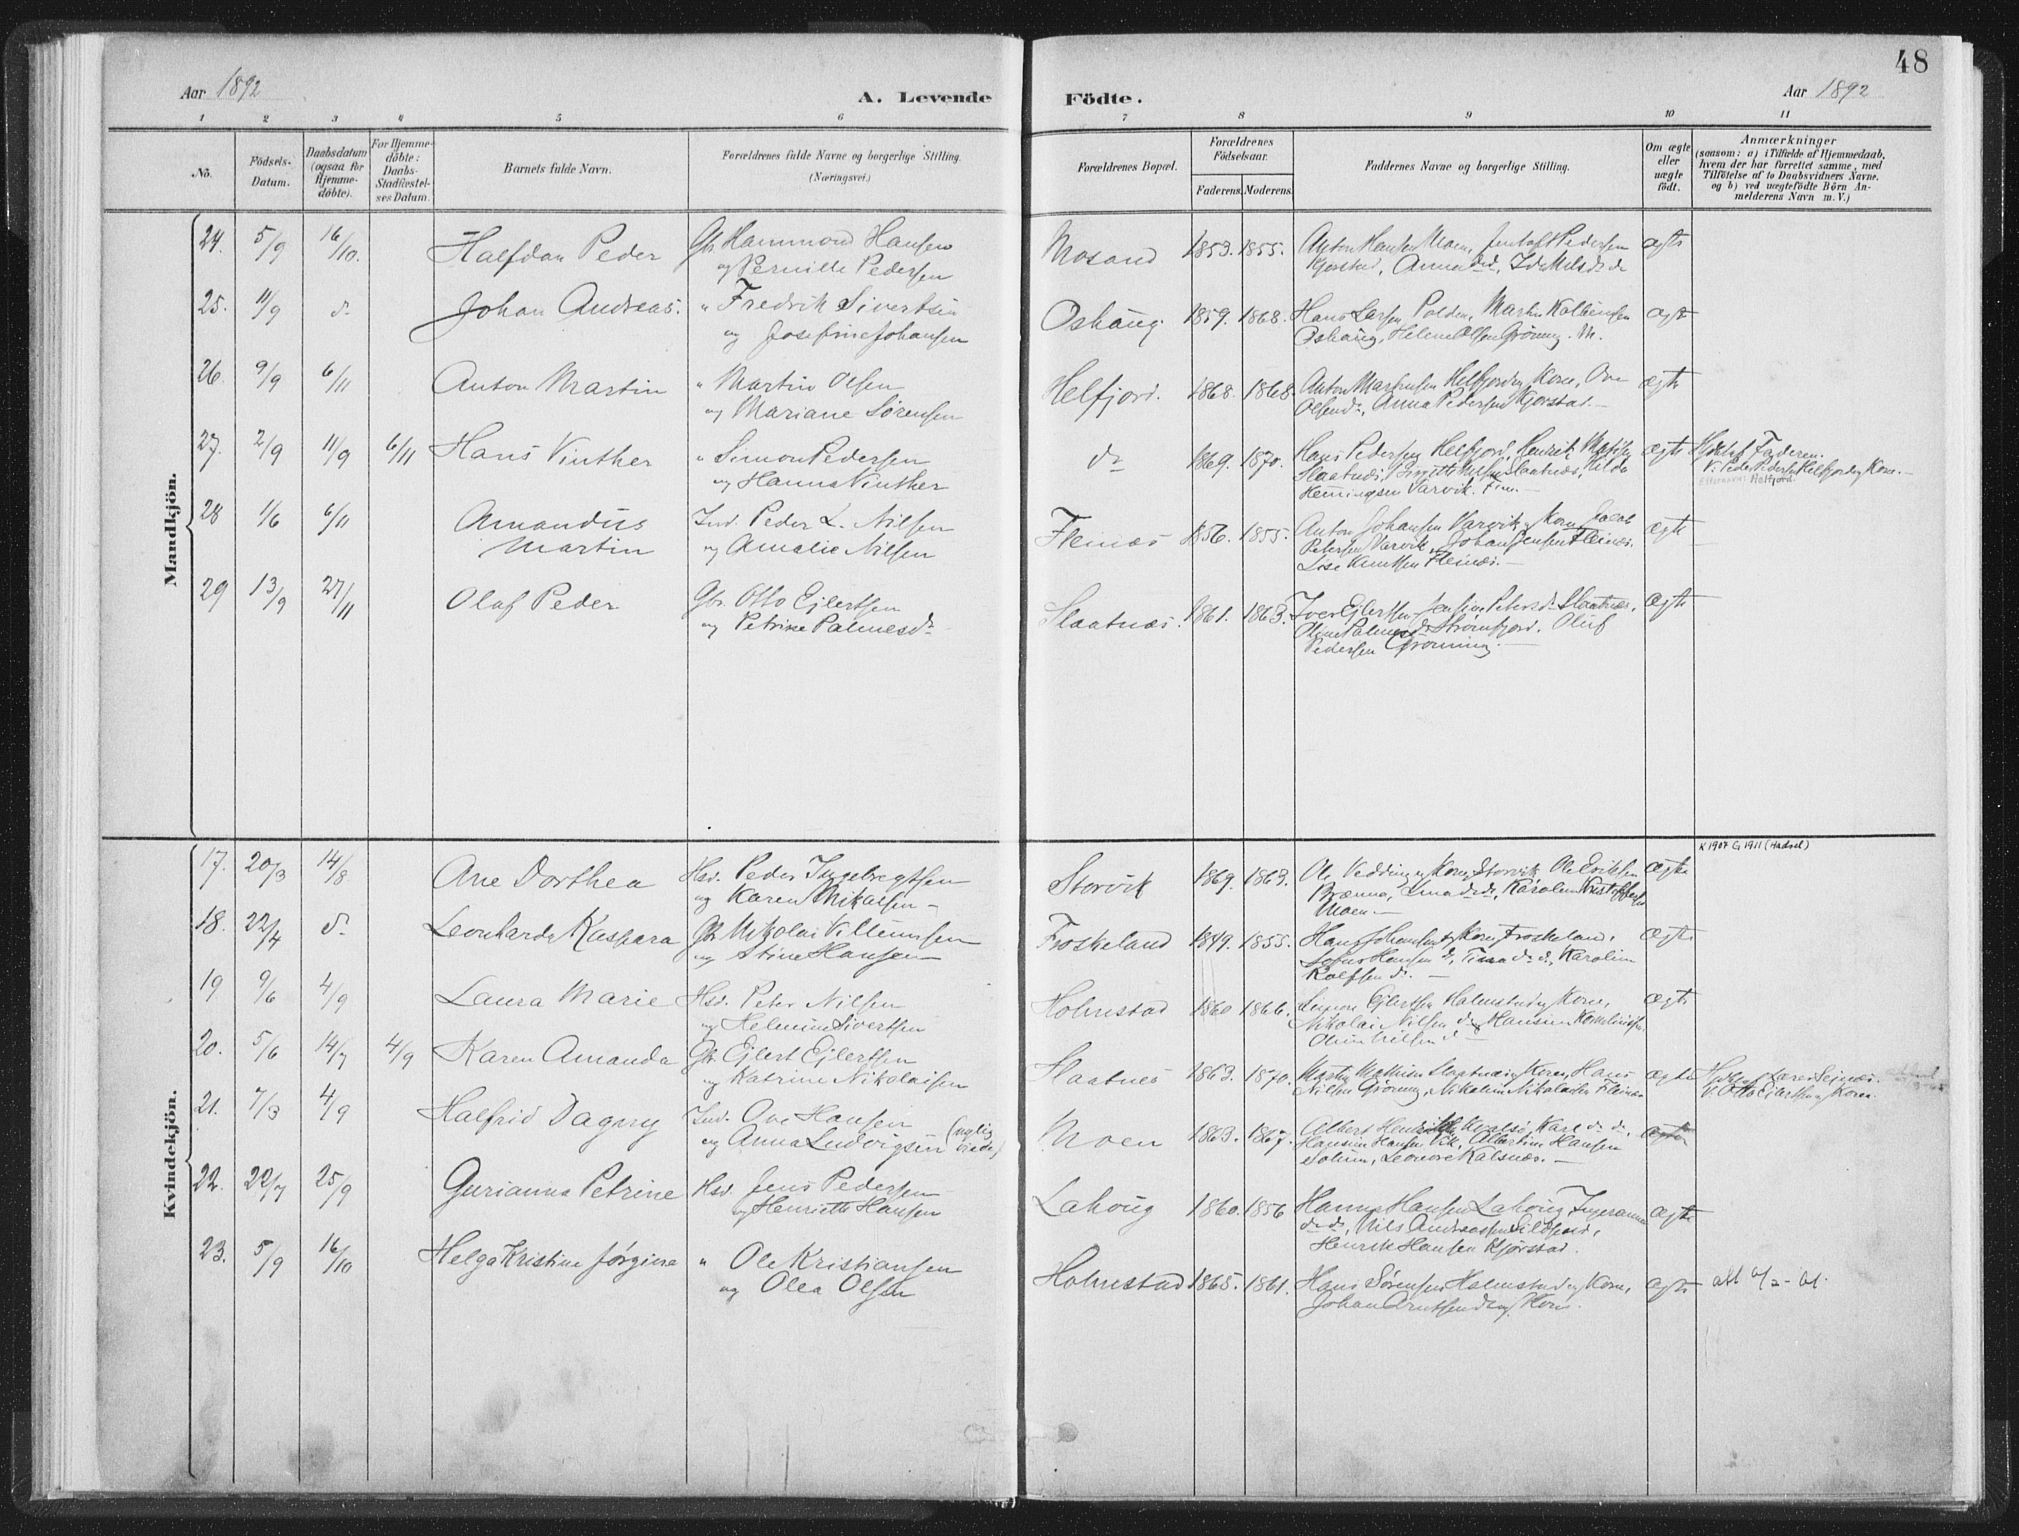 48
Aar 1892
A. Levende
Födte.
Aar 1892
1 2 3 4 5 6 7 8 9 10 11
No.
Födsels-
Datum.
Daabsdatum
(ogsaa for
Hjemme-
døbte).
For Hjemme-
døbte:
Daabs-
Stadfæstel-
ses Datum.
Barnets fulde Navn.
Forældrenes fulde Navne og borgerlige Stilling.
(Næringsvei.)
Forældrenes Bopæl.
Forældrenes
Födselsaar.
Faderens. Moderens.
Faddernes Navne og borgerlige Stilling.
Om ægte
eller
uægte
födt.
Anmærkninger
(saasom: a) i Tilfælde af Hjemmedaab,
hvem der har forrettet samme, med
Tilföielse af to Daabsvidners Navne,
og b) ved uægtefödte Börn An-
melderens Navn m. V.)
Mandkjön.
24. 5/9 16/10. Halfdan Peder Gbr. Hammond Hansen
og Pernille Pedersen
Mosand 1853. 1855. Anton Hansen Moen, Jentoft Pedersen
Kjørstad, Anna d d, Ida Nils d d ægte
25. 11/9 do Johan Andreas. " Fredrik Sivertsen
og Josefine Johansen
Oshaug. 1859. 1868. Hans Larsen Polden, Martin Kolbensen
Oshaug, Helene Olsen Grøning. ægte
26. 9/9 6/11 Anton Martin " Martin Olsen
og Mariane Sørensen
Helfjord. 1868. 1868. Anton Martinsen Helfjord og Kone, Ove
Olsen do, Anna Pedersen Kjørstad. ægte
27. 2/9 11/9 6/11 Hans Vinther " Simon Pedersen
og Hanna Vinther
do 1869. 1870. Hans Pedersen Helfjord, Henrik
Slaatnæs, Slaatnæs, Hilda
Henningsen Varvik. ægte Hjdbt af Faderen.
V. Peder Pedersen Helfjord og Kone.
Efternavn: Helfjord.
28 1/6 6/11 Amandus
Martin Ind. Peder L. Nilsen
og Amalie Nilsen
Fleinæs 1856. 1855. Anton Johansen Varvik og Kone, Jakob
Petersen Varvik, Johan Jensen Fleinæs.
Lise Knutsen Fleinæs. ægte
29 13/9 27/11 Olaf Peder Gbr. Otto Ejlertsen
og Petrine Palmesdr.
Slaatnæs. 1861. 1863. Iver Ejlertsen, Petersdr. Slaatnæs,
Oline Palmesdr Strømfjord, Oluf
Pedersen Grønning. ægte
Kvindekjön.
K 1907 G 1911 (Hadsel)
17. 20/3 14/8 Ane Dorthea Hsd. Peder Ingebregtsen
og Karen Mikalsen
Storvik 1869. 1863. Ole Vedding og Kone, Storvik, Ole Eriksen
Brænna, d d, Karoline Kristoffersen
Moen. ægte
18. 22/4 do Leonharda Kaspara Gbr. Nikolai Villumsen
og Stine Hansen
Froskeland 1849. 1855. Hans Johansen og Kone, Froskeland.
Hansen do, Tina d d, Karoline
Rolfsen do. ægte
19 9/6 4/9 Laura Marie Hsd. Peter Nilsen
og Helmine Sivertsen
Holmstad 1860 1866. Ejlertsen Holmstad og Kone,
Nikolai Nilsen do, Hansine Korneliussen,
Nilsen do ægte
20. 5/6 14/7 4/9 Karen Amanda Gbr. Ejlert Ejlertsen
og Katrine Nikolaisen
Slaatnes 1863. 1870. Martin Slaatnæs og Kone, Hans
Nilsen Grøning, Nikoline Nikolaisen Fleinæs ægte Hjdbt. Lærer Sejnæs.
V. Otto Ejlertsen og Kone.
21. 7/3 4/9 Halfrid Dagny Ind. Ove Hansen
og Anna Ludvigsen (nylig viede)
Moen 1863. 1867. Albert Henriksen Kvalsø, Karl d d.
Hansine Hansen Vik, Albertine Hansen
Solum, Leonore Kalsnæs. ægte
22. 22/7 25/9 Gurianna Petrine Hsd. Jens Pedersen
og Henriette Hansen
Lahoug 1860. 1856 Hanna Hansen Lahoug, Ingeranna
d d, Nils Andreassen Sildpold,
Henrik Hansen Kjørstad. ægte
23. 5/9 16/10 Helga Kristine Jørgine " Ole Kristiansen
og Olea Olsen
Holmstad 1865. 1861. Hans Sørensen Holmstad og Kone,
Johan Arntsen do og Kone. ægte att 6/2 - 01.